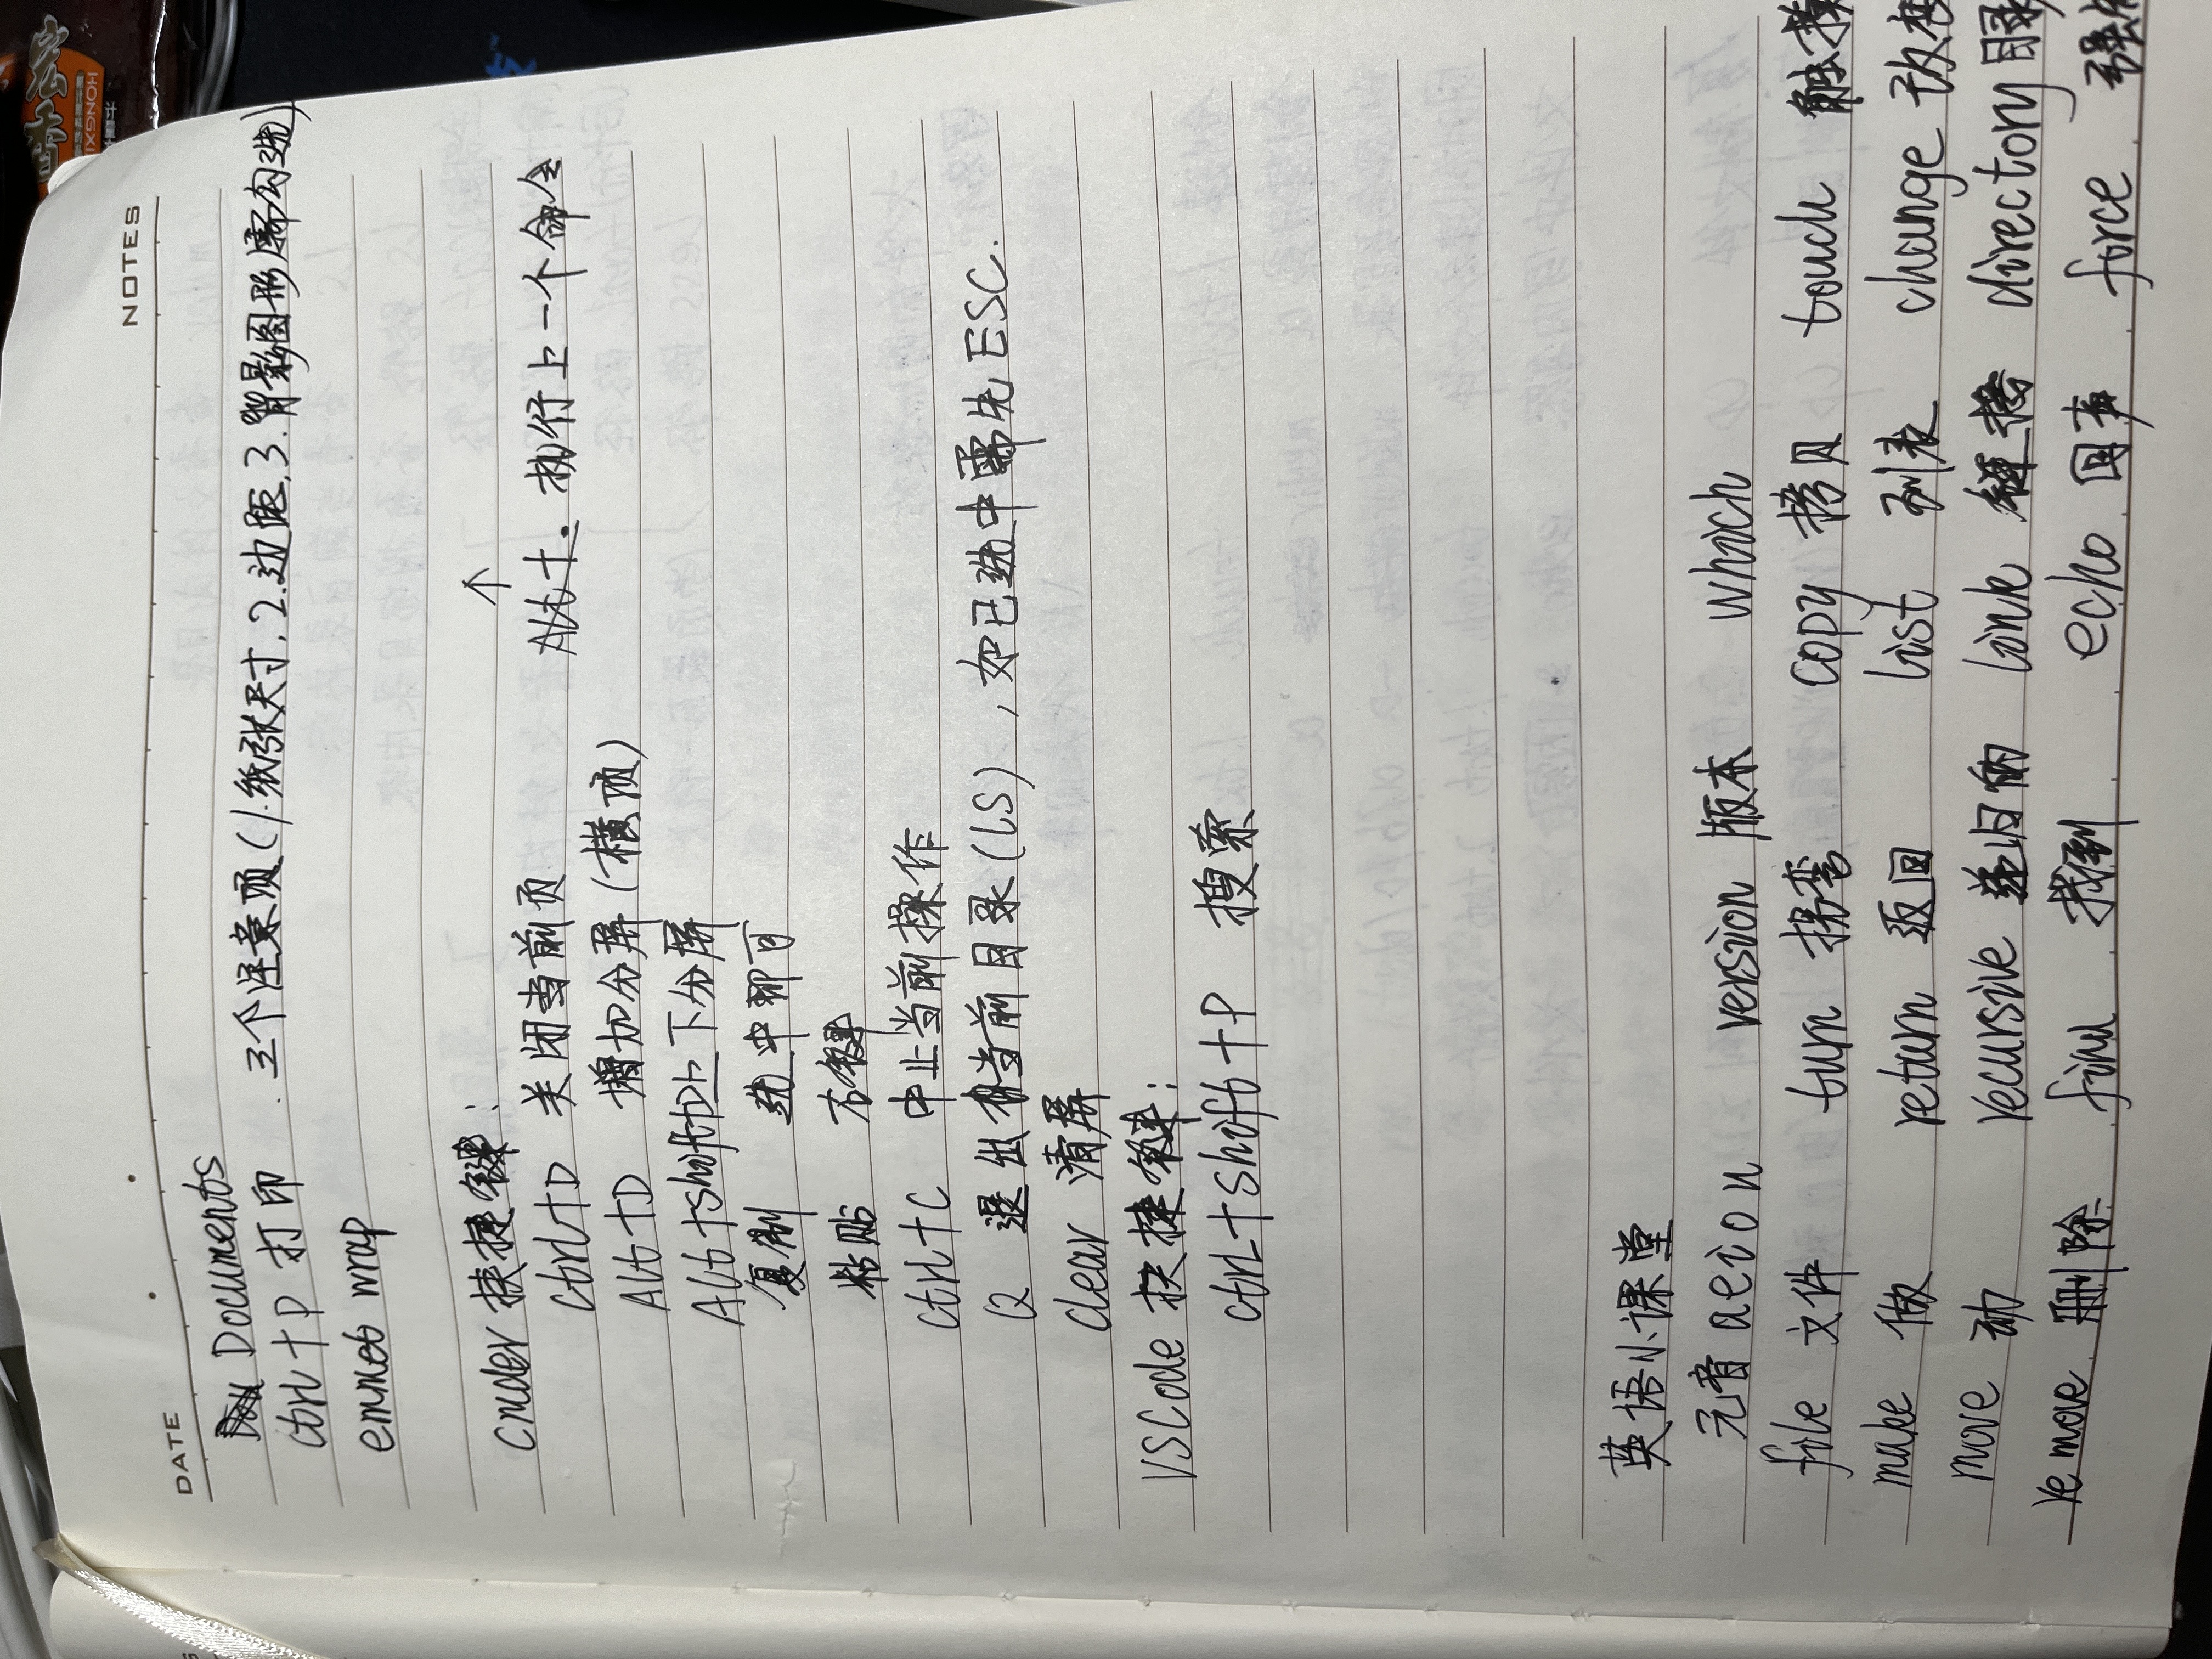 NOTES
DATE
Documents
ctrl+P 打印 . 三个注意项(1.纸张尺寸,2.边距,3.背影图形需勾选)
emmet wrap
cmder 快捷键:
↑
ctrl+D 关闭当前页 Alt+. 执行上一个命令
Alt+D 增加分屏(横项)
Alt+shift+D上下分屏
复制 选中即可
粘贴 右键
ctrl+C 中止当前操作
Q 退出当前目录(LS),如已选中需先ESC.
clear 清屏
VSCode 快捷键:
ctrl+shift+P 搜索
英语小课堂
元音 a e i o u version 版本 which
file 文件 turn 拐弯 copy 拷贝 touch 触摸
make 做 return 返回 list 列表 change 改变
move 动 recursive 递归的 link 链接 directory 目录
remove 删除 find 找到 echo 回声 force 强
HONGXI